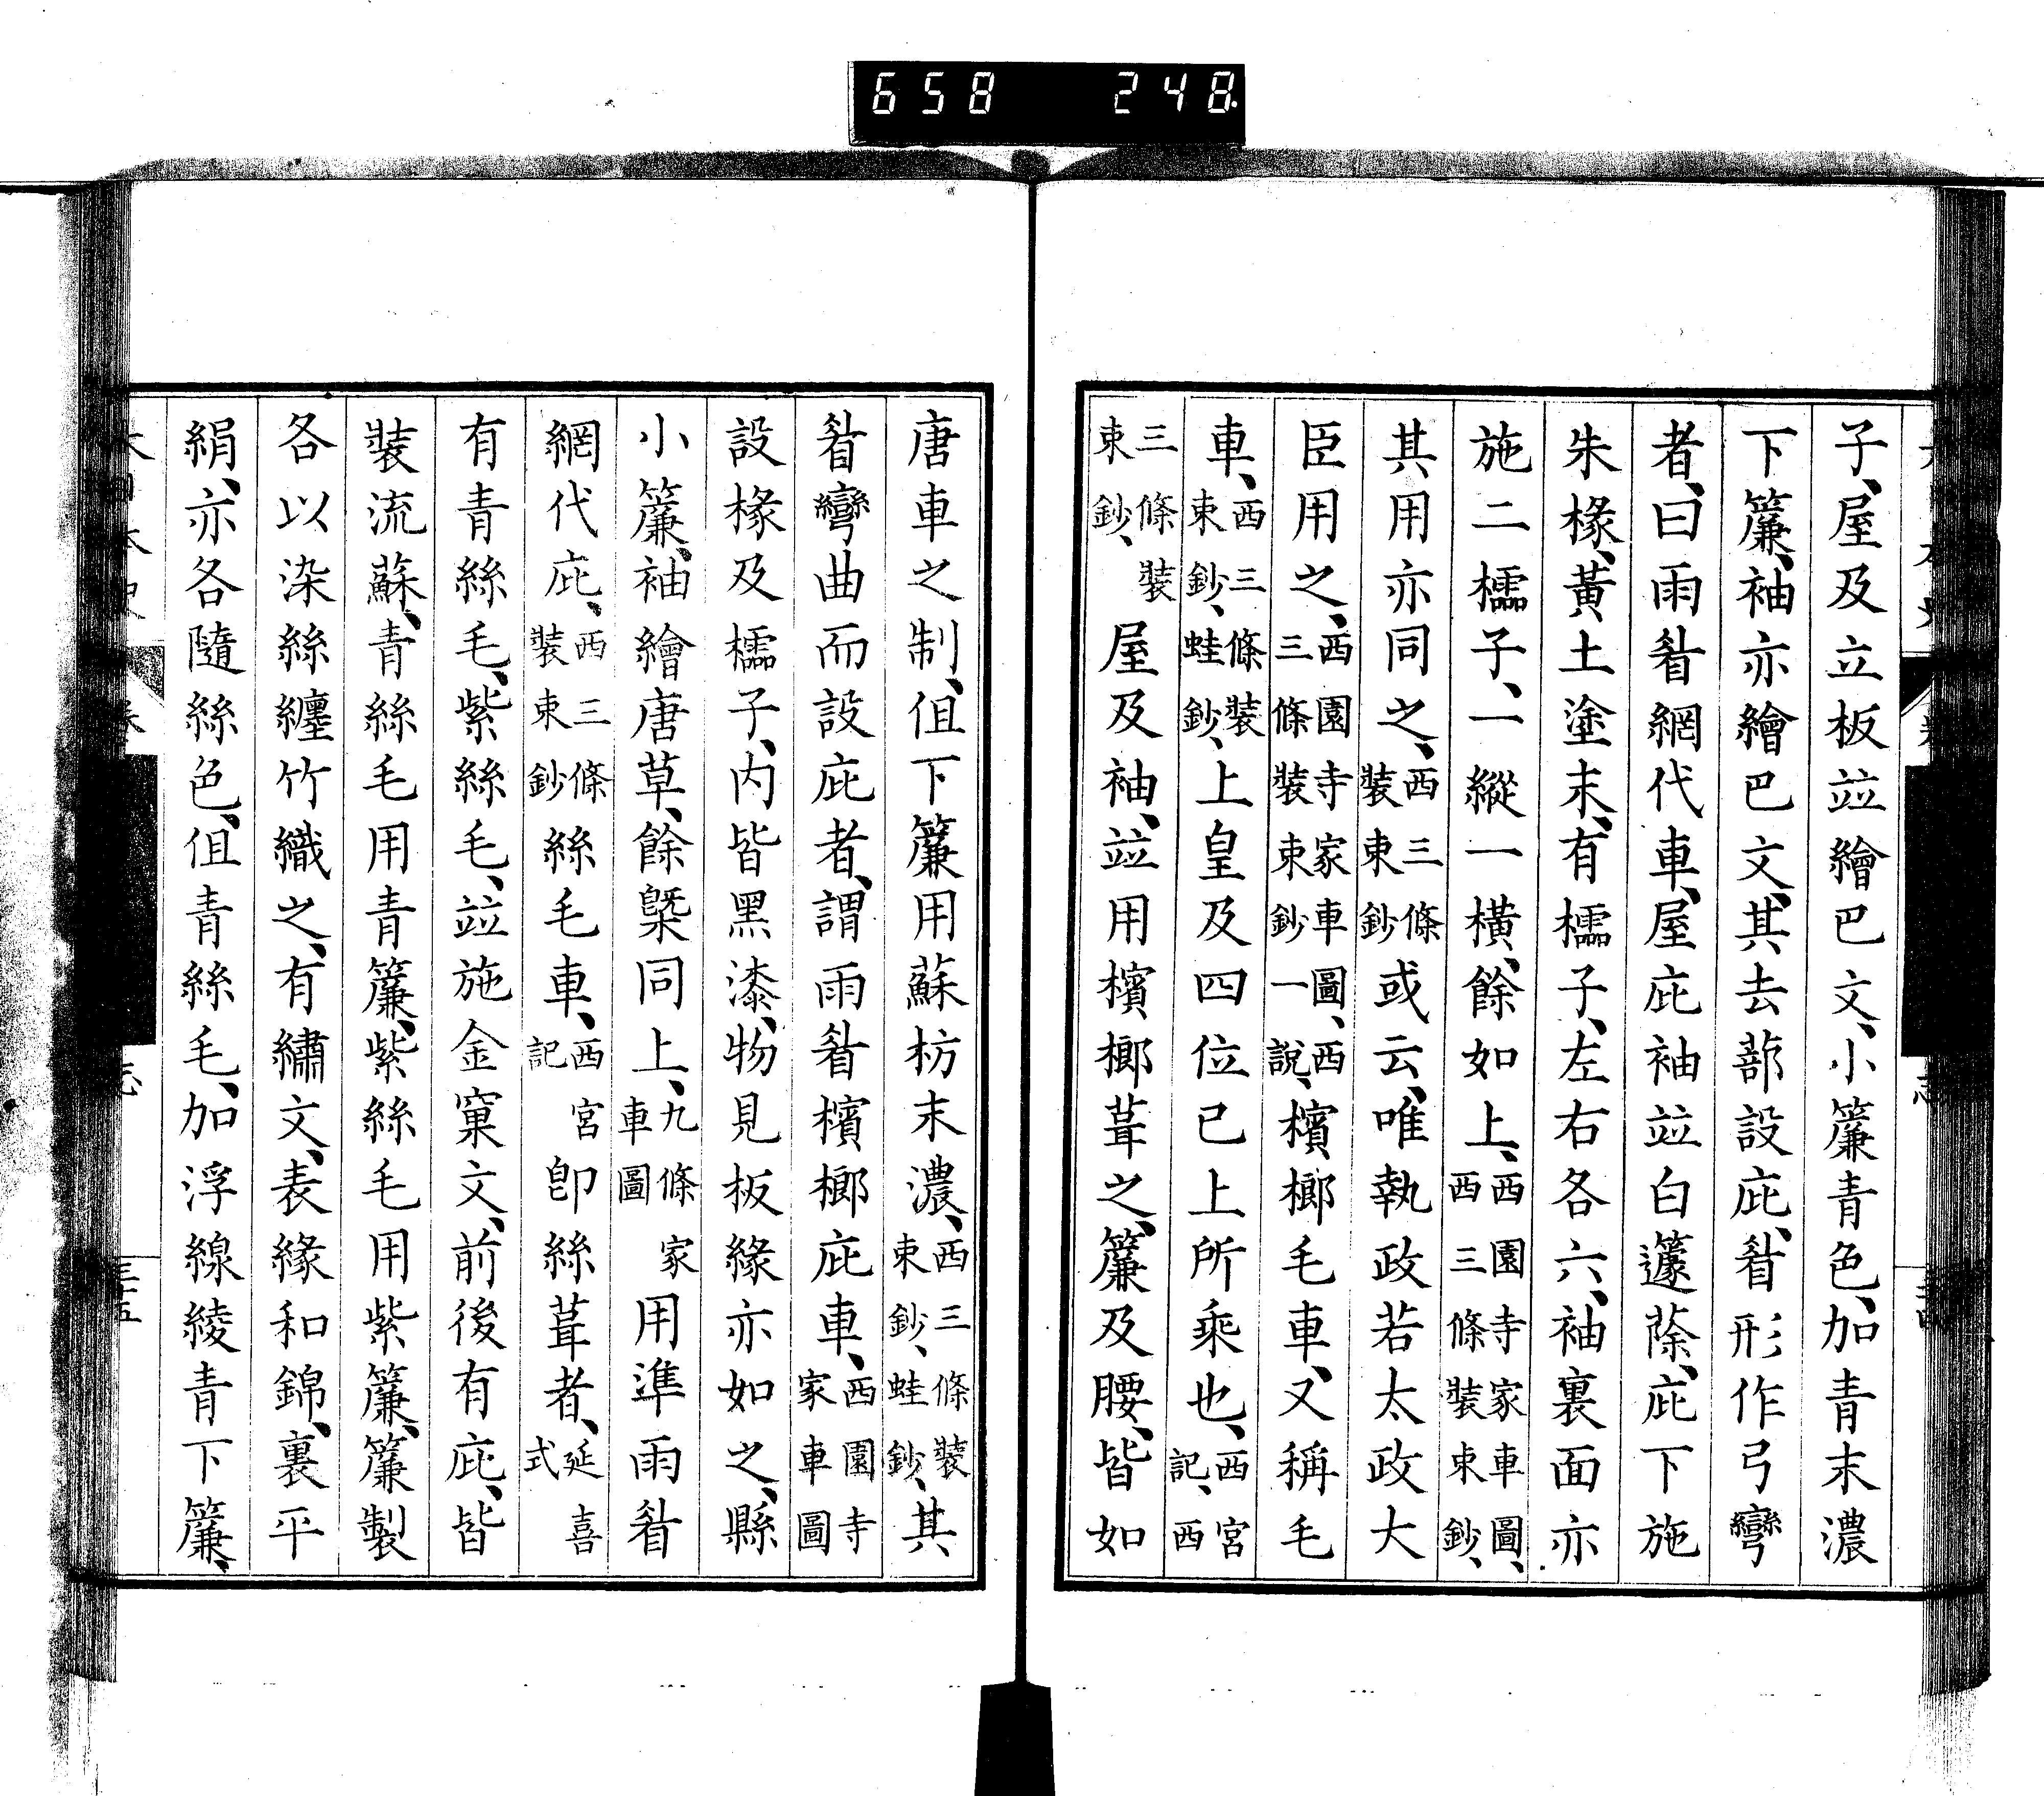 658 248.
子、屋及立板竝繪巴文、小簾青色、加青末濃
下簾、袖亦繪巴文、其去蔀設庇、眉形作弓彎
者、曰雨眉網代車、屋庇袖竝白籧蒢、庇下施
朱椽、黃土塗末、有檽子、左右各六、袖裏面亦
施二檽子、一縱一橫、餘如上、西園寺家車圖、西三條裝束鈔、
其用亦同之、西三條裝束鈔或云、唯執政若太政大
臣用之、西園寺家車圖、西三條裝束鈔一說、檳榔毛車、又稱毛
車、西三條裝束鈔、蛙鈔、上皇及四位已上所乘也、西宮記、西
三條裝束鈔、屋及袖、竝用檳榔葺之、簾及腰、皆如
唐車之制、但下簾用蘇枋末濃、西三條裝束鈔、蛙鈔、其
眉彎曲而設庇者、謂雨眉檳榔庇車、西園寺家車圖
設椽及檽子、内皆黑漆、物見板緣亦如之、縣
小簾、袖繪唐草、餘槩同上、九條家車圖用準雨眉
網代庇、西三條裝束鈔絲毛車、西宮記卽絲葺者、延喜式
有青絲毛、紫絲毛、竝施金窠文、前後有庇、皆
裝流蘇、青絲毛用青簾、紫絲毛用紫簾、簾製
各以染絲纏竹織之、有繡文、表緣和錦、裏平
絹、亦各隨絲色、但青絲毛、加浮線綾青下簾、